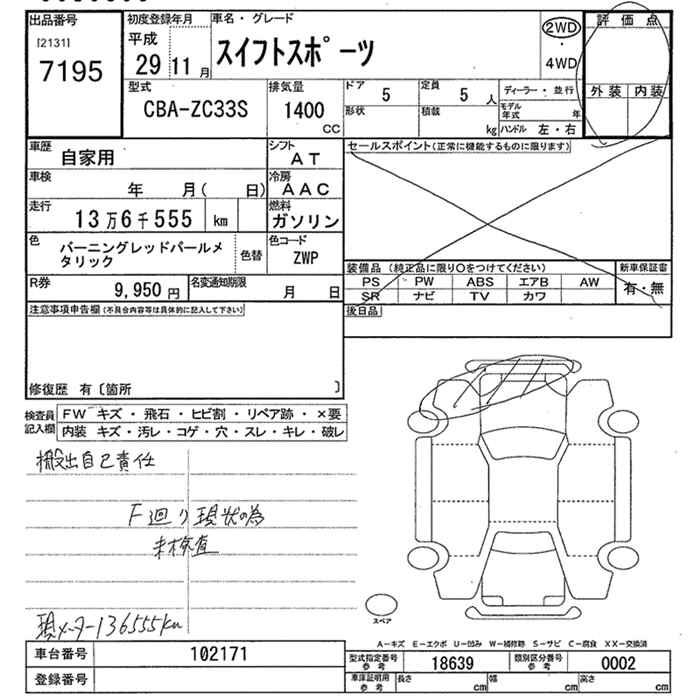 出品番号 初度登録年月 車名・グレード 2WD 評価点
[2131] 平成 スイフトスポーツ ・
7195 29 11月 4WD
型式 排気量 ドア 定員 ディーラー・並行 外装 内装
CBA-ZC33S 1400 5 5人 モデル年式 年
cc 形状 積載 kg ハンドル 左・右
車歴 自家用 シフト AT セールスポイント(正常に機能するものに限ります)
車検 年 月( 日) 冷房 AAC
走行 13万6千555 km 燃料 ガソリン
色 バーニングレッドパールメ 色替 色コード
タリック ZWP
装備品 (純正品に限り○をつけてください) 新車保証書
R券 9,950円 名変通知期限 月 日 PS PW ABS エアB AW 有・無
SR ナビ TV カワ
注意事項申告欄(不具合内容等は具体的に記入して下さい) 後日品
修復歴 有〔箇所 〕
検査員 FW キズ・飛石・ヒビ割・リペア跡・×要
記入欄 内装 キズ・汚レ・コゲ・穴・スレ・キレ・破レ
搬出自己責任
F廻り現状の為
未検査
現メーター136555km
スペア
A−キズ E−エクボ U−凹み W−補修跡 S−サビ C−腐食 XX−交換済
車台番号 102171 型式指定番号 参考 18639 類別区分番号 参考 0002
登録番号 車庫証明用 参考 長さ cm 幅 cm 高さ cm